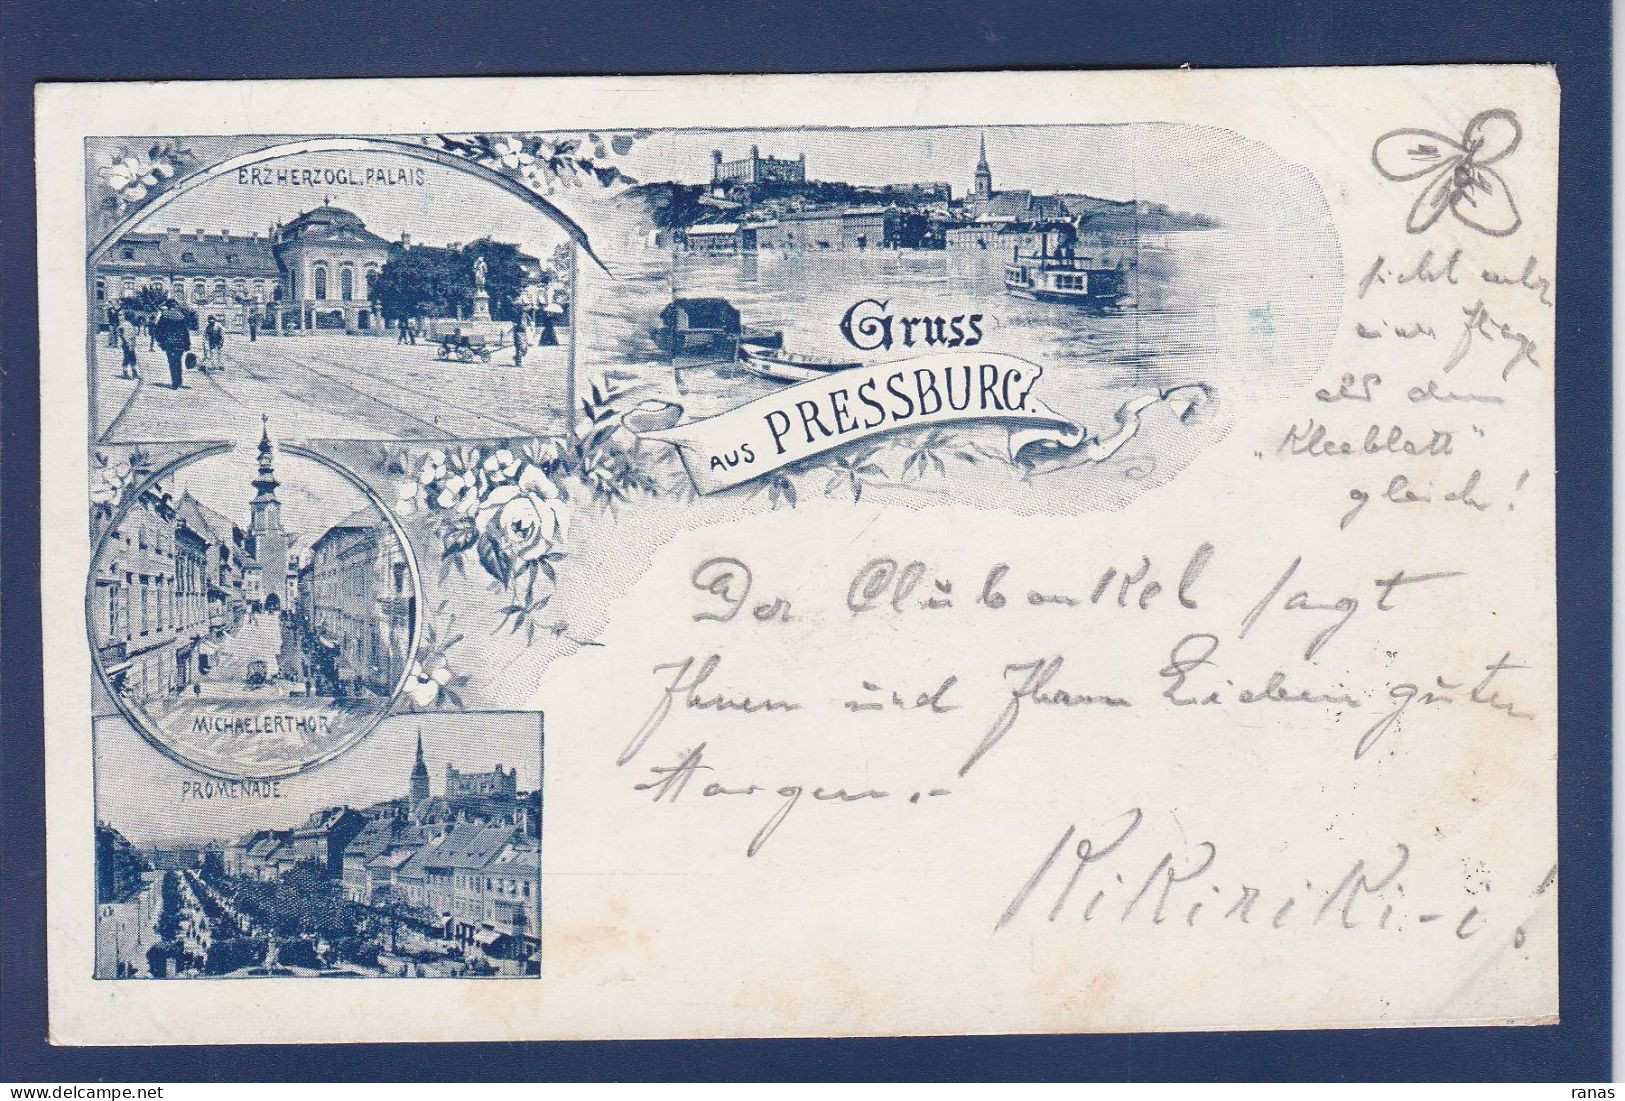 ERZHERZOGL. PALAIS.
Gruss
AUS PRESSBURG.
MICHAELERTHOR
PROMENADE.
sieht mehr
einer Fliege
als dem
„Kleeblatt"
gleich!
Der Clubonkel sagt
Ihnen und Ihren Lieben guten
Morgen.-
KiKiriKi-i!
ranas
delcampe.net